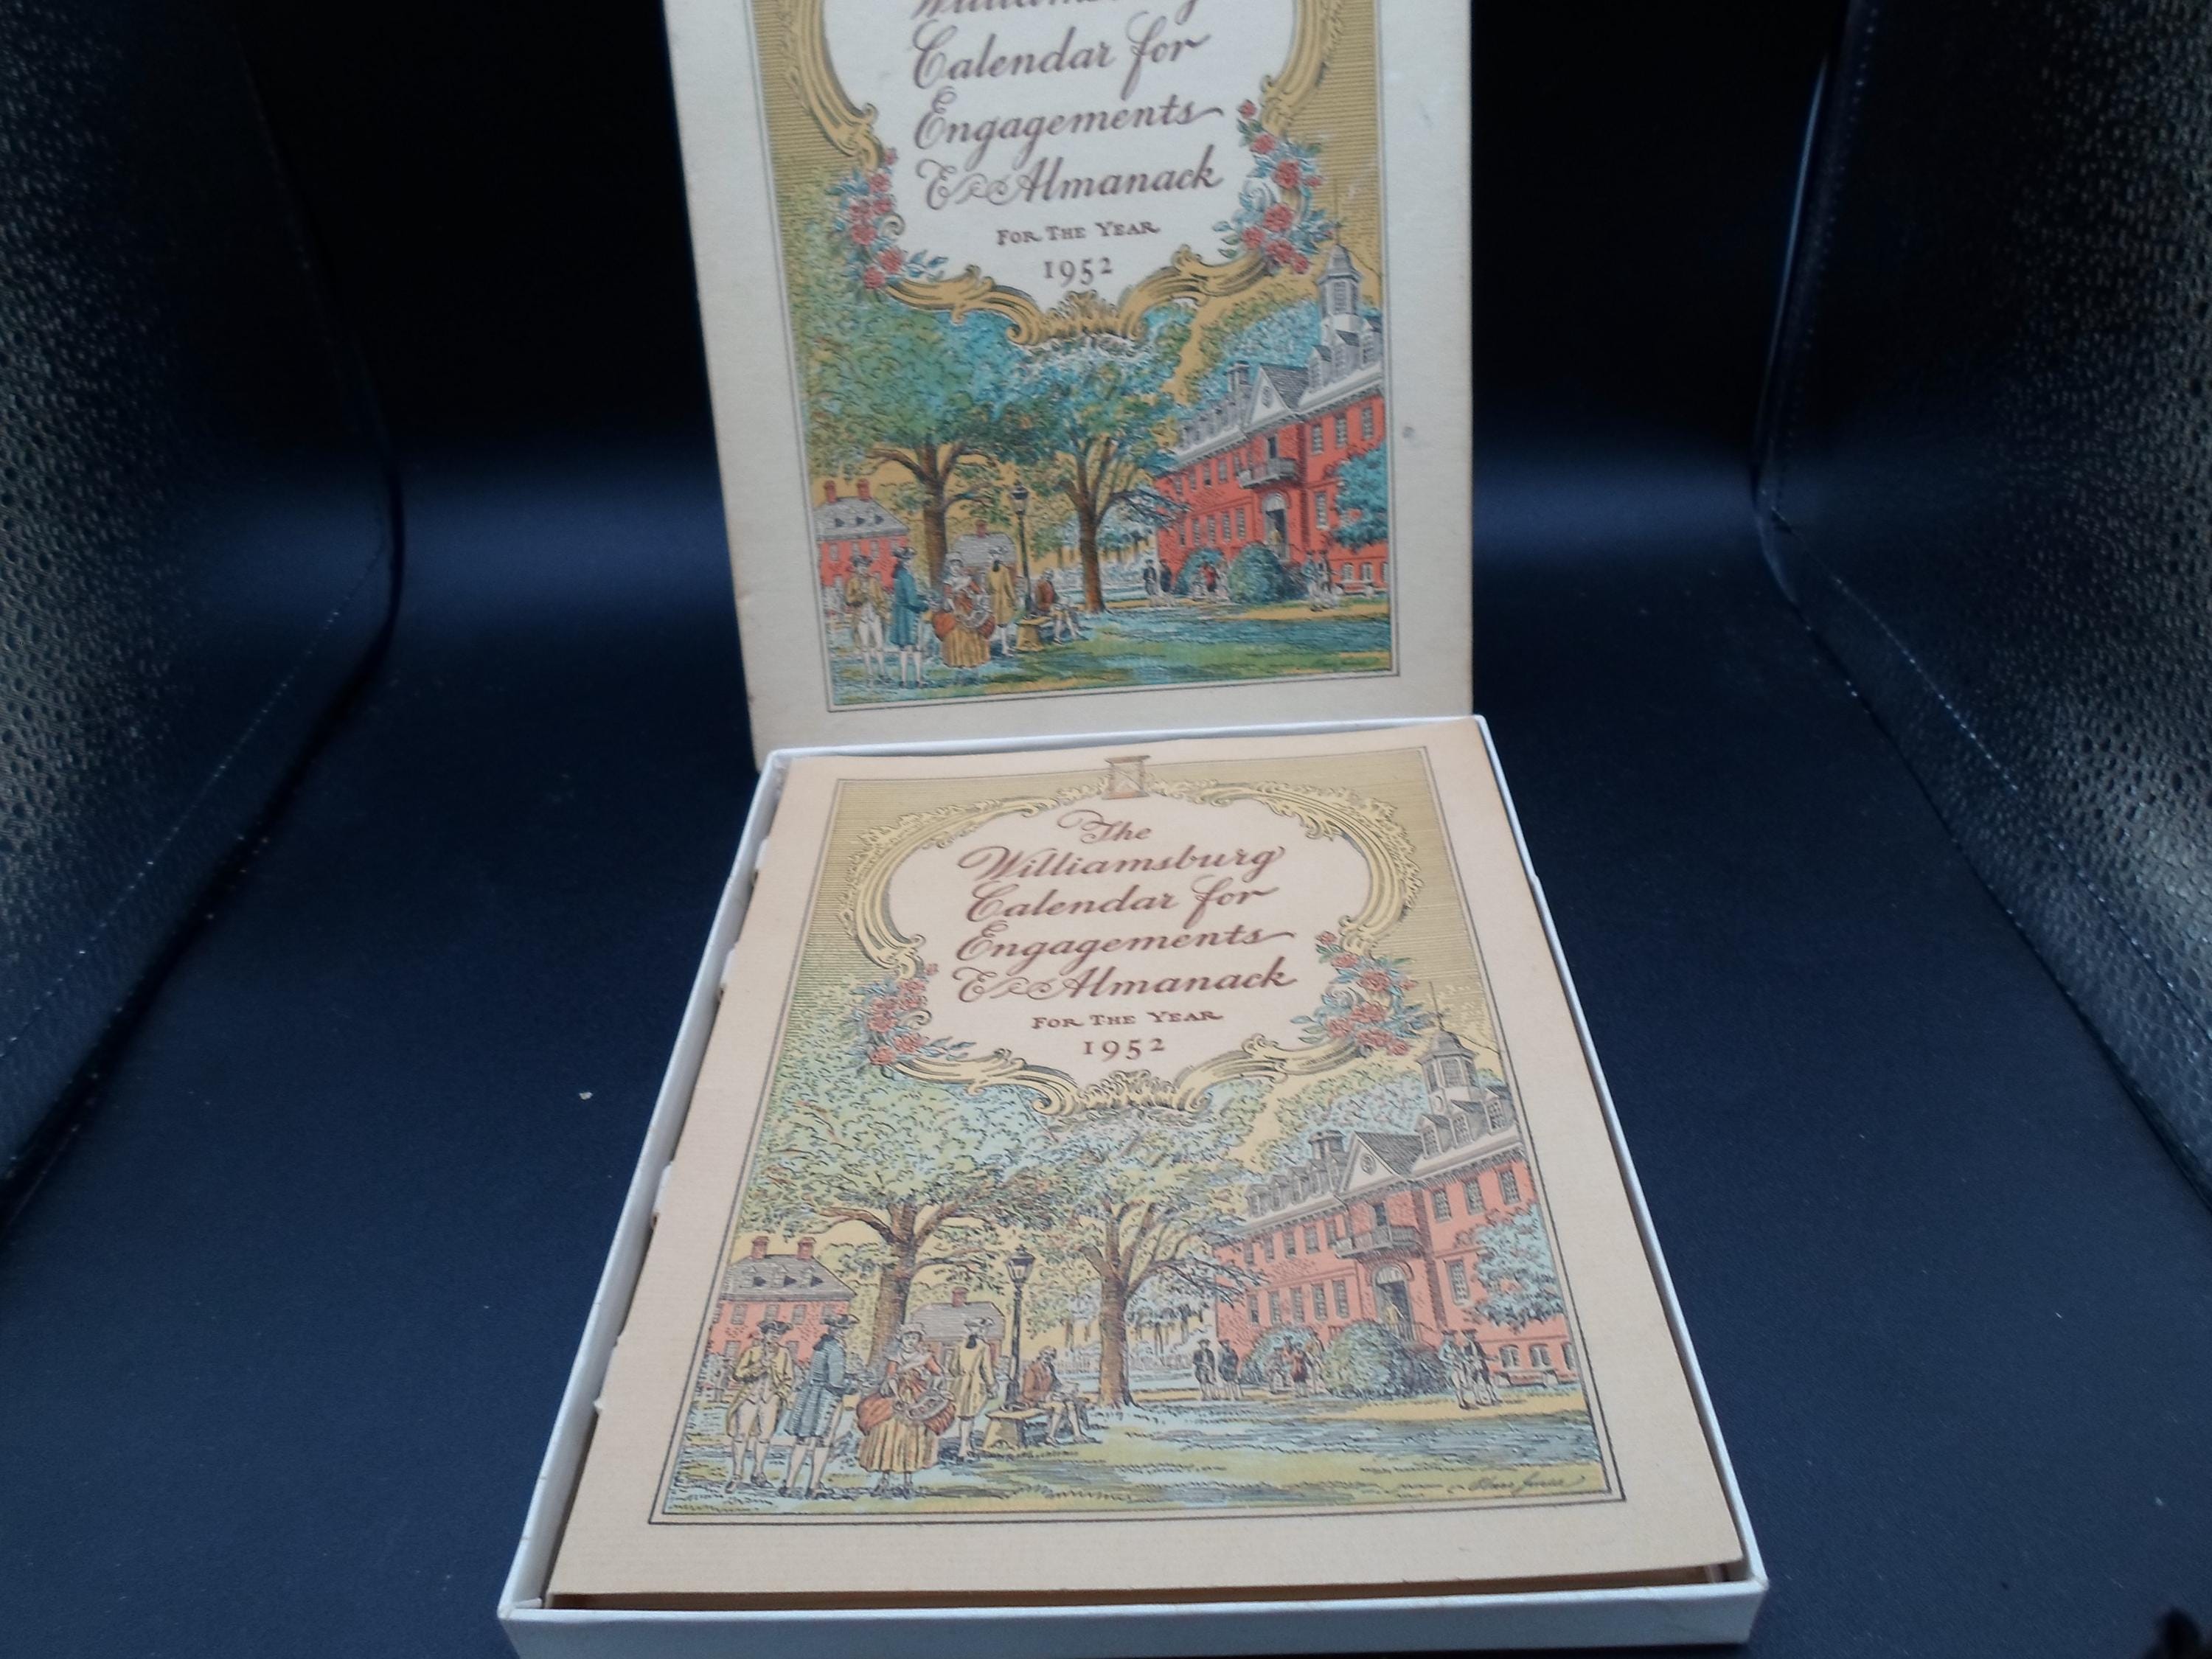 Williamsburg
Calendar for
Engagements
& Almanack
FOR THE YEAR
1952
The
Williamsburg
Calendar for
Engagements
& Almanack
FOR THE YEAR
1952